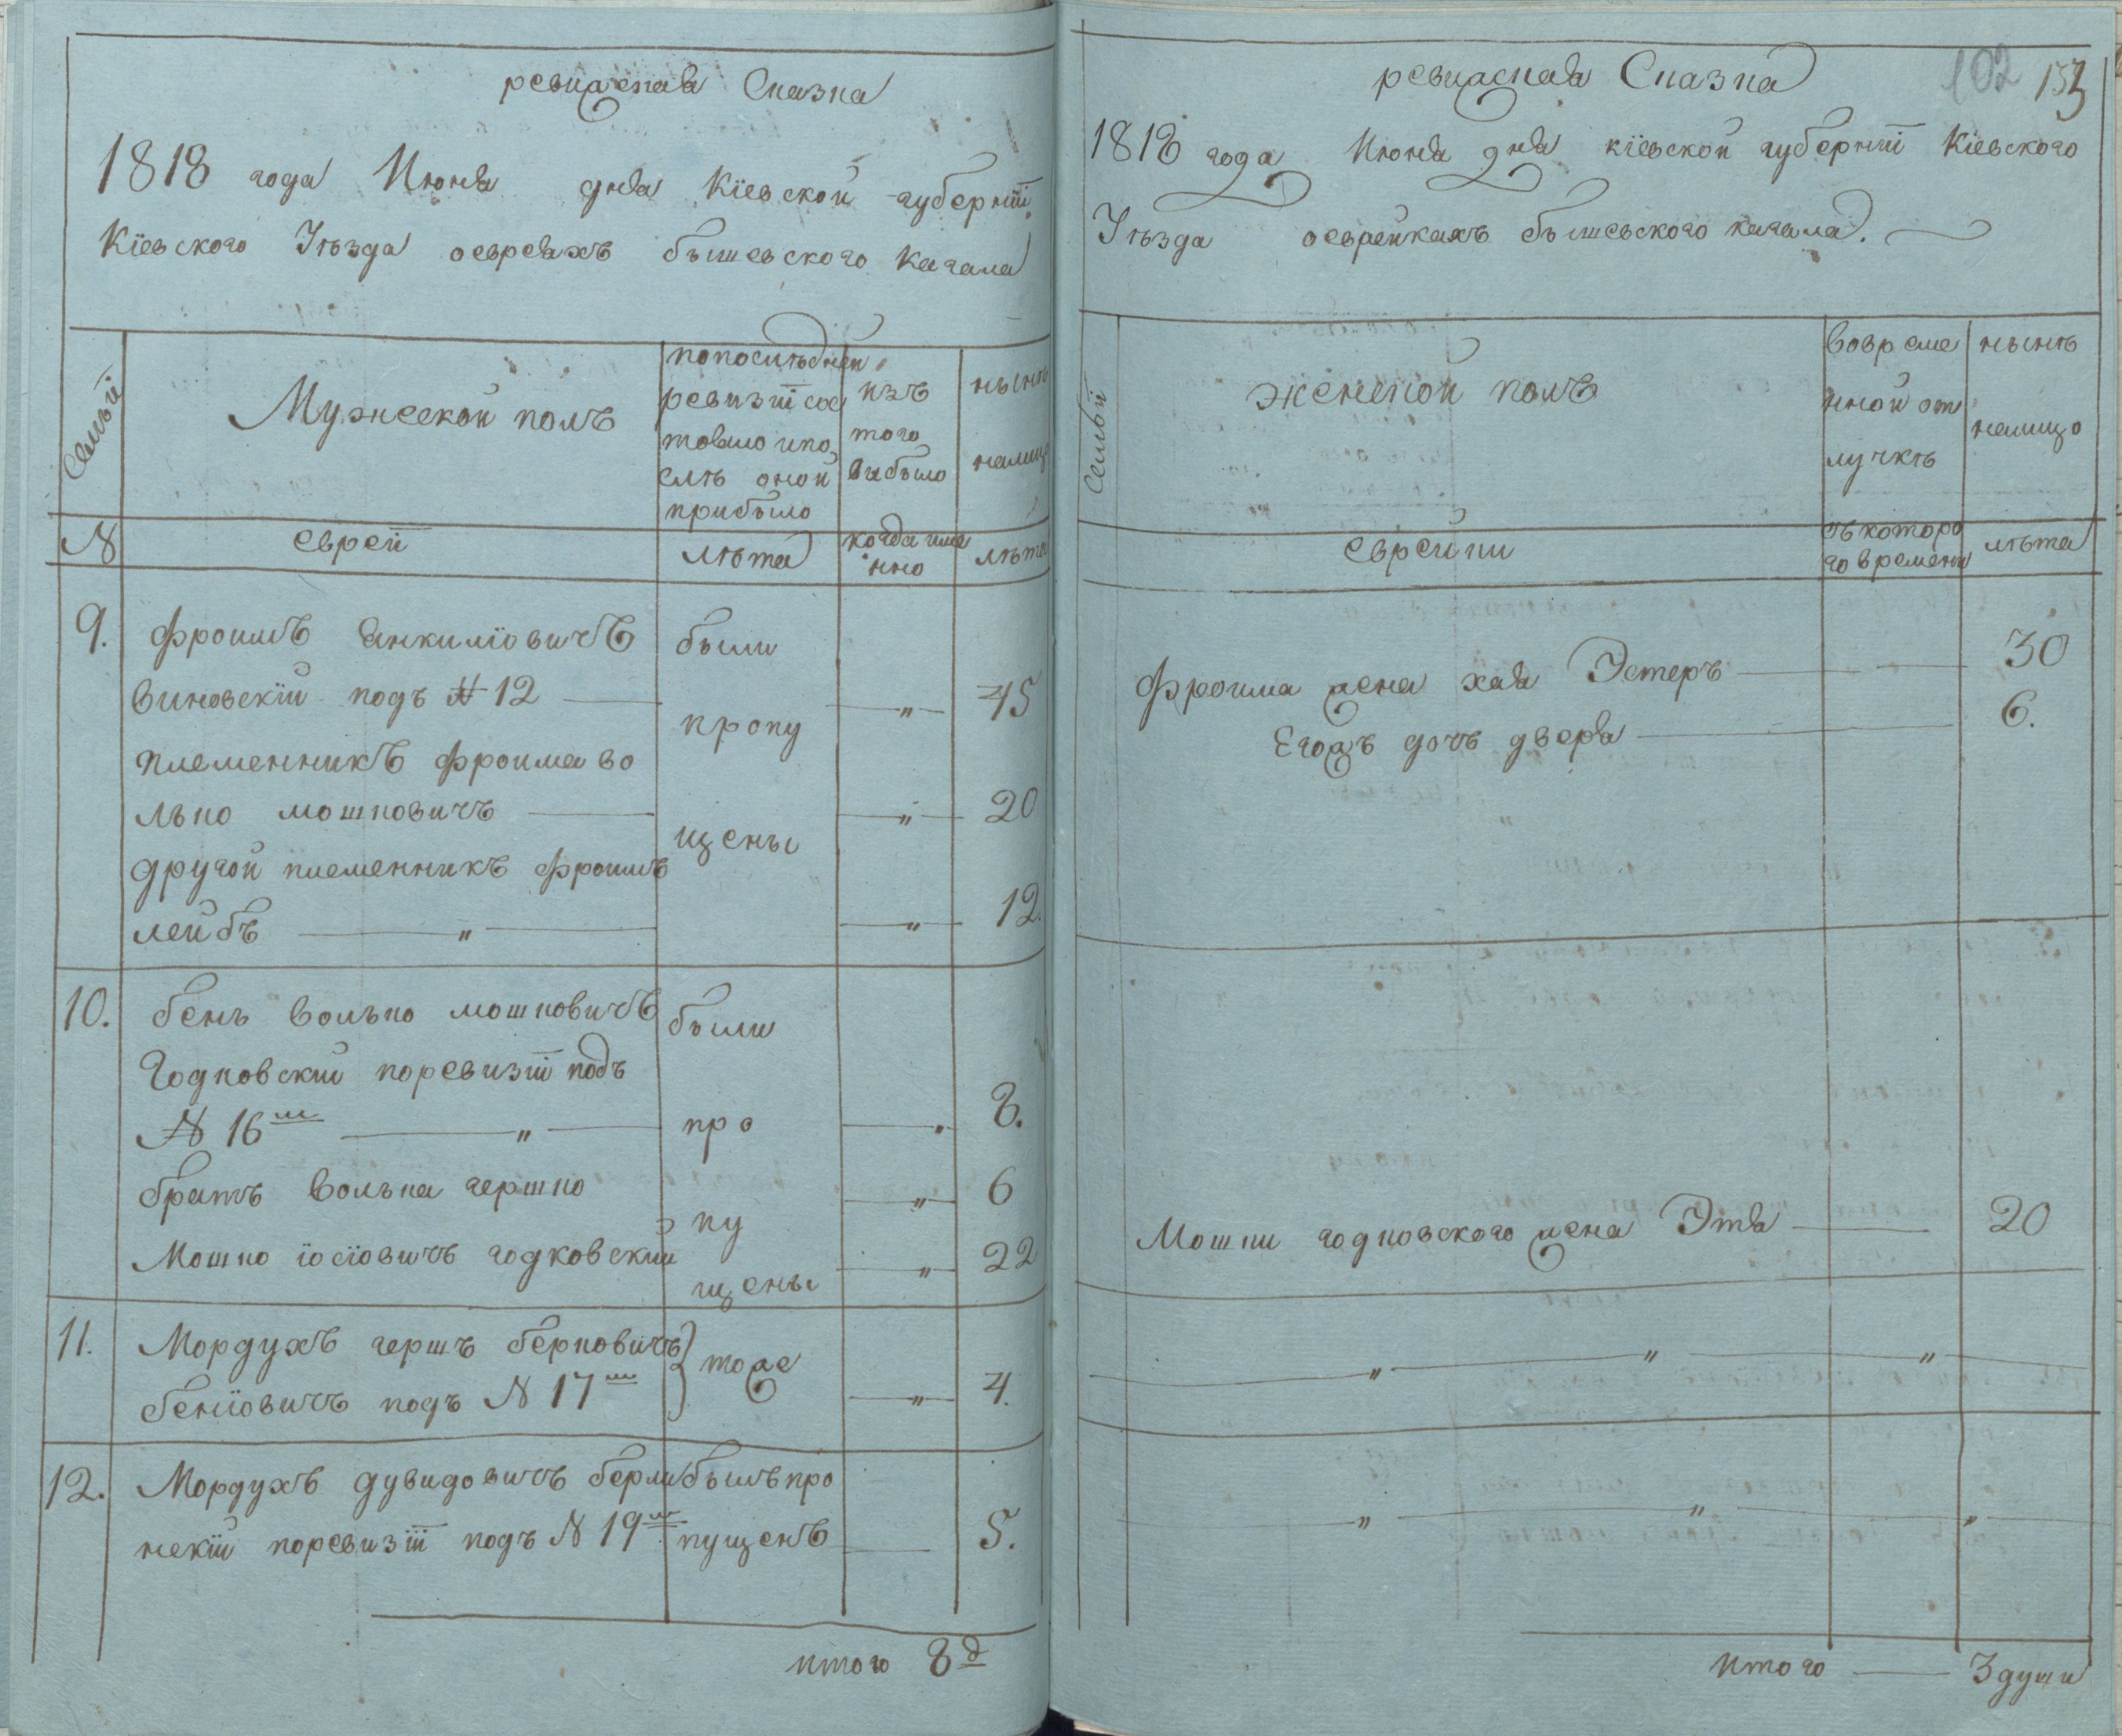 ревижская Сказка
1818 года Июня дня Кіевской губерніи
Кіевского Уѣзда оевреяхъ бышевского Кагала
Семьи
Мужеской полъ
попослѣдней
ревизіи сос
тояло ипо
слѣ оной
прибыло
изъ
того
выбыло
нынѣ
налицо
№
евреи
лѣта
когда име
нно
лѣта
9.
фроимъ Янкиліовичъ
виновскій подъ № 12
были
пропу
щены
45
племенникъ фроима во
лько мошковичъ
20
другой племенникъ фроимъ
лейбъ
12.
10.
бень волько мошковичъ
Годковский поревизіи подъ
№ 16м
были
про
пу
щены
8.
братъ волька гершко
6
Мошко іосіовичъ годковский
22
11.
Мордухъ гершъ берковичъ
беніовичъ подъ № 17м
тоже
4.
12.
Мордухъ дувидовичъ берли
нскій поревизіи подъ № 19м
былъ про
пущенъ
5.
итого 8д
102 153
ревижская Сказка
1818 года Июня дня кіевской губерніи Кіевского
Уѣзда оеврейкахъ бышевского кагала.
Семьи
женской полъ
вовреме
нной от
лучкѣ
нынѣ
налицо
еврейки
съ которо
го времени
лѣта
фроима жена хая Эстеръ 30
Егожъ дочь двера 6.
Мошки годковского жена Этя 20
итого 3 души